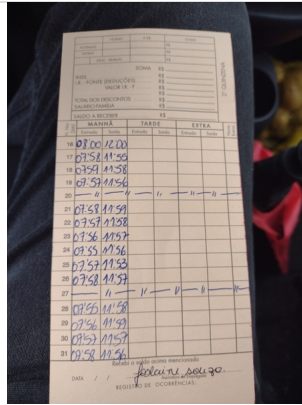 R$
R$
R$
SOMA R$
INSS R$
I.R. - FONTE (DEDUÇÕES) R$
VALOR I.R. - F R$
TOTAL DOS DESCONTOS R$
SALÁRIO-FAMÍLIA R$
SALDO A RECEBER R$
2ª QUINZENA
MANHÃ TARDE EXTRA
Entrada Saída Entrada Saída Entrada Saída
16 08:00 12:00
17 07:58 11:55
18 07:59 11:58
19 07:57 11:56
20 — 11 — 11 — 11 — 11 — 11 —
21 07:58 11:59
22 07:57 11:58
23 07:56 11:57
24 07:55 11:56
25 07:57 11:53
26 07:58 11:57
27 — 11 — 11 — 11 — 11 —
28 07:55 11:58
29 07:56 11:59
30 07:57 11:57
31 07:58 11:56
Recebi o saldo acima mencionado
souza
DATA / /
REGISTRO DE OCORRÊNCIAS: